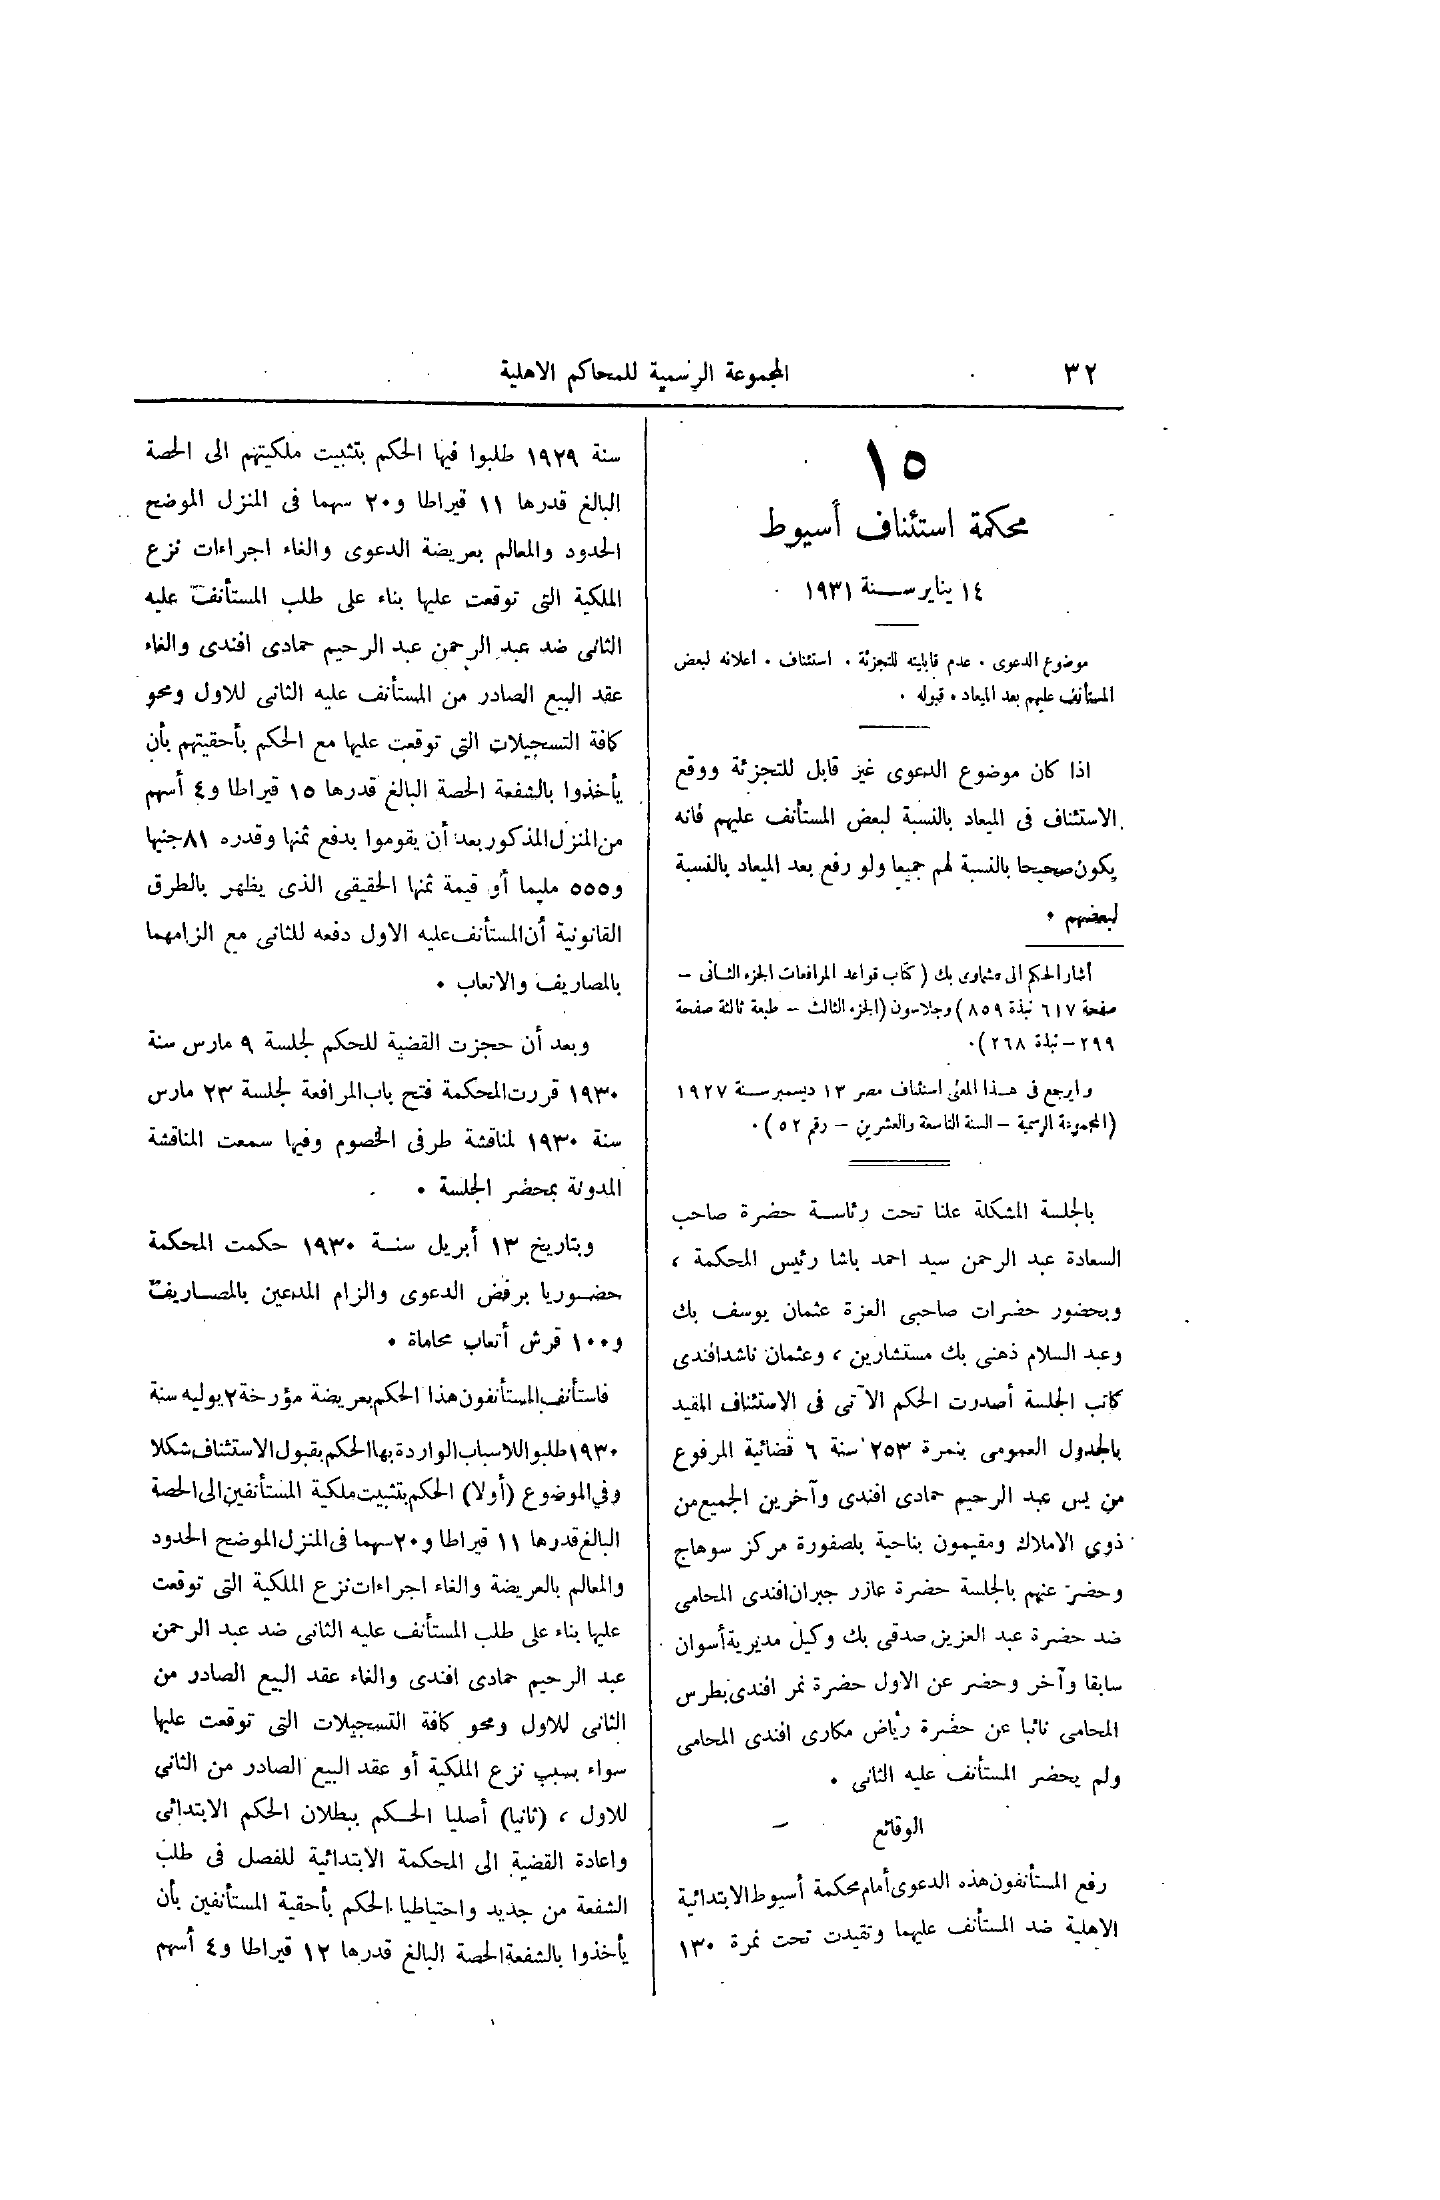 ٣٢
المجموعة الرسمية للمحاكم الاهلية
١٥
محكمة استئناف أسيوط
١٤ يناير سنة ١٩٣١
موضوع الدعوى . عدم قابليته للتجزئة . استئناف . اعلانه لبعض
المستأنف عليهم بعد الميعاد . قبوله .
اذا كان موضوع الدعوى غير قابل للتجزئة ووقع
الاستئناف فى الميعاد بالنسبة لبعض المستأنف عليهم فانه
يكون صحيحا بالنسبة لهم جميعا ولو رفع بعد الميعاد بالنسبة
لبعضهم .
أشار الحكم الى عشماوى بك ( كتاب قواعد المرافعات الجزء الثانى –
صفحة ٦١٧ نبذة ٨٥٩ ) وجلاسون (الجزء الثالث – طبعة ثالثة صفحة
٢٩٩ – نبذة ٢٦٨ ) .
وارجع فى هذا المعنى استئناف مصر ١٣ ديسمبر سنة ١٩٢٧
(المجموعة الرسمية – السنة التاسعة والعشرين – رقم ٥٢ ) .
بالجلسة المشكلة علنا تحت رئاسة حضرة صاحب
السعادة عبد الرحمن سيد احمد باشا رئيس المحكمة ،
وبحضور حضرات صاحبى العزة عثمان يوسف بك
وعبد السلام ذهنى بك مستشارين ، وعثمان ناشد افندى
كاتب الجلسة أصدرت الحكم الآتى فى الاستئناف المقيد
بالجدول العمومى بنمرة ٢٥٣ سنة ٦ قضائية المرفوع
من يس عبد الرحيم حمادى افندى وآخرين الجميع من
ذوي الاملاك ومقيمون بناحية بلصفورة مركز سوهاج
وحضر عنهم بالجلسة حضرة عازر جبران افندى المحامى
ضد حضرة عبد العزيز صدقى بك وكيل مديرية أسوان
سابقا وآخر وحضر عن الاول حضرة نمر افندى بطرس
المحامى نائبا عن حضرة رياض مكارى افندى المحامى
ولم يحضر المستأنف عليه الثانى .
الوقائع
رفع المستأنفون هذه الدعوى أمام محكمة أسيوط الابتدائية
الاهلية ضد المستأنف عليهما وتقيدت تحت نمرة ١٣٠
سنة ١٩٢٩ طلبوا فيها الحكم بتثبيت ملكيتهم الى الحصة
البالغ قدرها ١١ قيراطا و٢٠ سهما فى المنزل الموضح
الحدود والمعالم بعريضة الدعوى والغاء اجراءات نزع
الملكية التى توقعت عليها بناء على طلب المستأنف عليه
الثانى ضد عبد الرحمن عبد الرحيم حمادى افندى والغاء
عقد البيع الصادر من المستأنف عليه الثانى للاول ومحو
كافة التسجيلات التي توقعت عليها مع الحكم بأحقيتهم بأن
يأخذوا بالشفعة الحصة البالغ قدرها ١٥ قيراطا و٤ أسهم
من المنزل المذكور بعد أن يقوموا بدفع ثمنها وقدره ٨١ جنيها
و٥٥٥ مليما أو قيمة ثمنها الحقيقى الذى يظهر بالطرق
القانونية أن المستأنف عليه الاول دفعه للثانى مع الزامهما
بالمصاريف والاتعاب .
وبعد أن حجزت القضية للحكم لجلسة ٩ مارس سنة
١٩٣٠ قررت المحكمة فتح باب المرافعة لجلسة ٢٣ مارس
سنة ١٩٣٠ لمناقشة طرفى الخصوم وفيها سمعت المناقشة
المدونة بمحضر الجلسة .
وبتاريخ ١٣ أبريل سنة ١٩٣٠ حكمت المحكمة
حضوريا برفض الدعوى والزام المدعين بالمصاريف
و١٠٠ قرش أتعاب محاماة .
فاستأنف المستأنفون هذا الحكم بعريضة مؤرخة ٢ يوليه سنة
١٩٣٠ طلبوا للاسباب الواردة بها الحكم بقبول الاستئناف شكلا
وفي الموضوع (أولا) الحكم بتثبيت ملكية المستأنفين الى الحصة
البالغ قدرها ١١ قيراطا و٢٠ سهما فى المنزل الموضح الحدود
والمعالم بالعريضة والغاء اجراءات نزع الملكية التى توقعت
عليها بناء على طلب المستأنف عليه الثانى ضد عبد الرحمن
عبد الرحيم حمادى افندى والغاء عقد البيع الصادر من
الثانى للاول ومحو كافة التسجيلات التى توقعت عليها
سواء بسبب نزع الملكية أو عقد البيع الصادر من الثاني
للاول ، (ثانيا) أصليا الحكم ببطلان الحكم الابتدائى
واعادة القضية الى المحكمة الابتدائية للفصل فى طلب
الشفعة من جديد واحتياطيا الحكم بأحقية المستأنفين بأن
يأخذوا بالشفعة الحصة البالغ قدرها ١٢ قيراطا و٤ أسهم